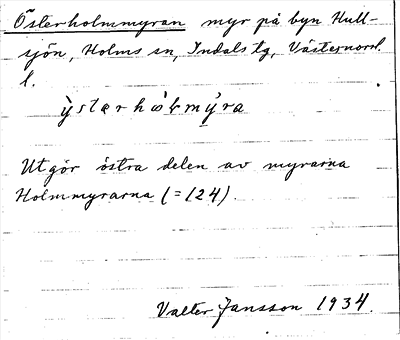 Österholmmyran myr på byn Hull-
sjön, Holms sn, Indals tg, Västernorrl.
l.
ỳstərhòɫmỵ́ra
Utgör östra delen av myrarna
Holmmyrarna (=124).
Valter Jansson 1934.